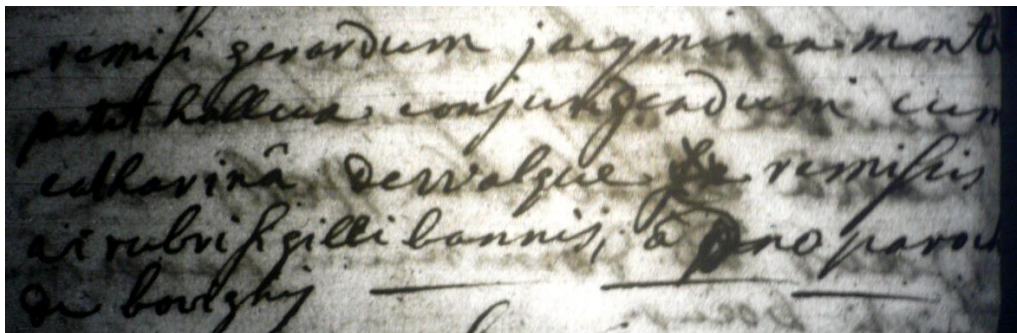 remisi gerardum jacqminea mont
petit halleux conjungendum cum
catharinâ derwalque remissis
ac rubri sigilli bannis, â Dno paroch
de bovighy